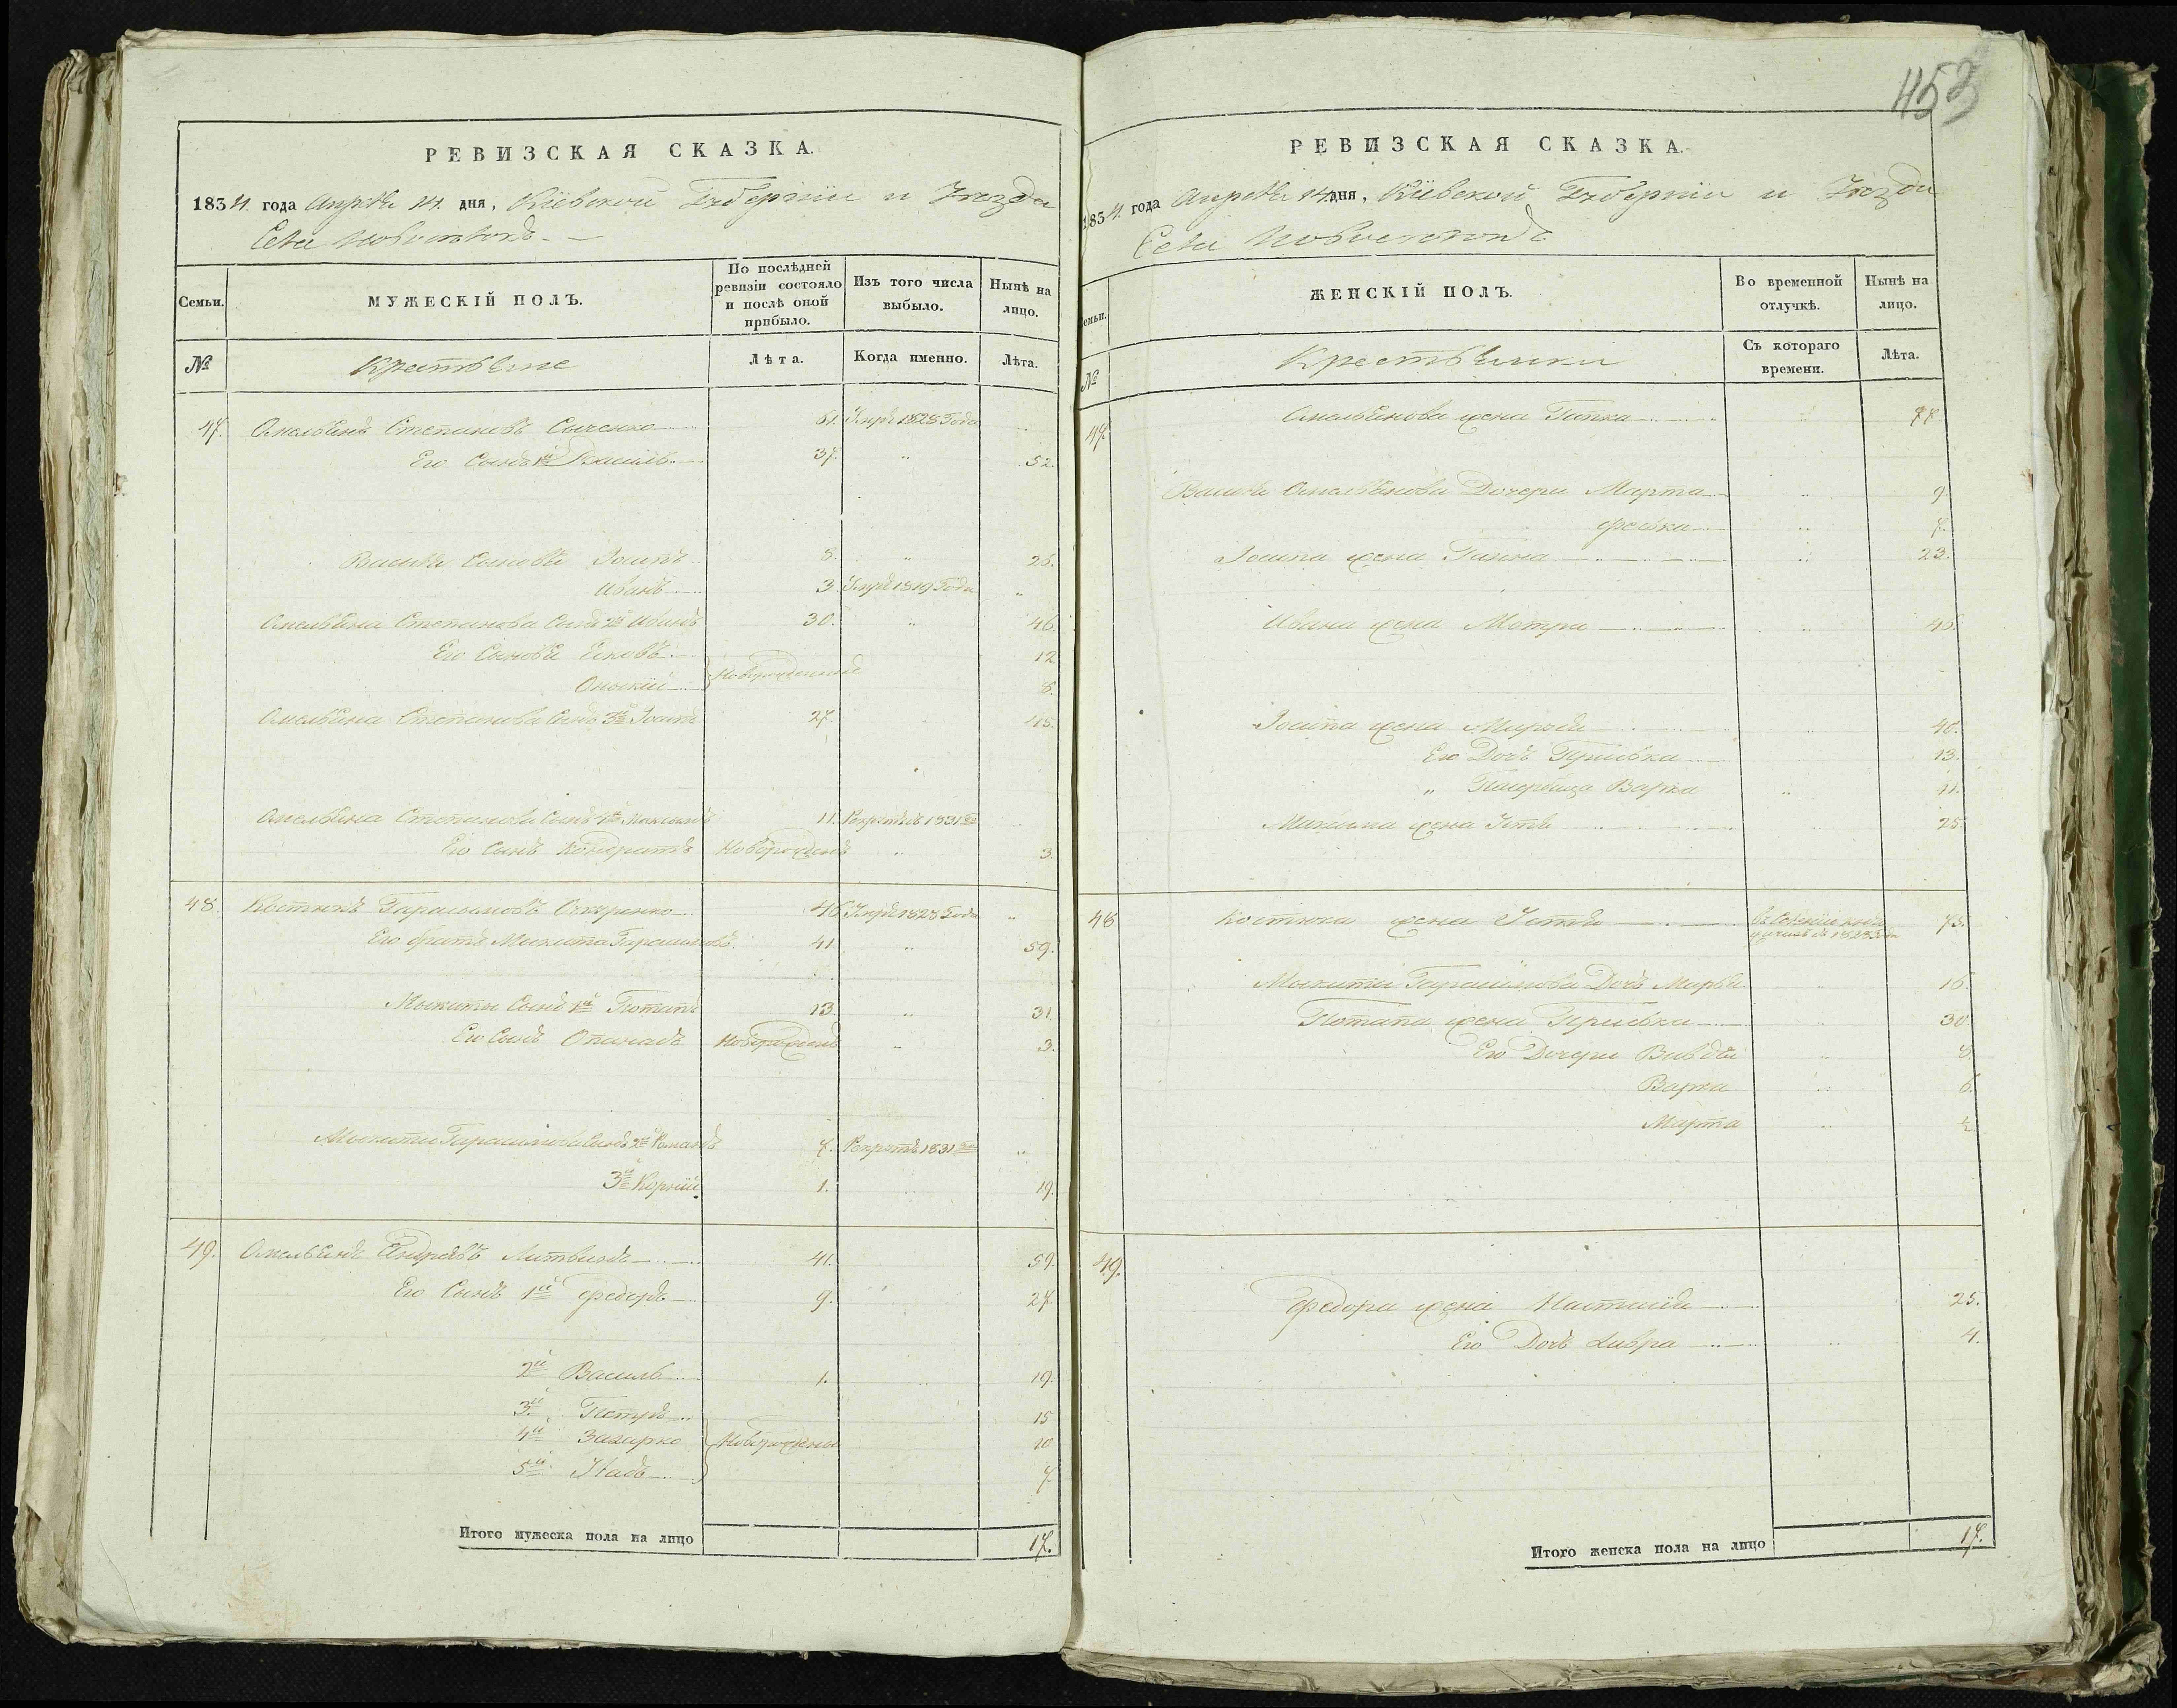 453
РЕВИЗСКАЯ СКАЗКА.
1834. года Апреля 14. дня, Кіевской Губерніи и Уезда
Села
Семьи.
МУЖЕСКІЙ ПОЛЪ.
По послѣдней ревизіи состояло и послѣ оной прибыло.
Изъ того числа выбыло.
Нынѣ на лицо.
№
Крестьяне
Лѣта.
Когда именно.
Лѣта.
47. Омельянъ Степановъ Сыченко 61. Умре 1828 Года
Его Сынъ 1й Василь 37. 52.
Василя Сыновья Іосипъ 8. 25.
Иванъ 3. Умре 1819 Года
Омельяна Степанова Сынъ 2й Иванъ 30. 46.
Его Сыновья 12
Новорожденные 8.
Омельяна Степанова Сынъ 3й Іосипъ 27. 45.
Омельяна Степанова Сынъ 4й Максимъ 11. 1831го
Его Сынъ Кондратъ Новорожденъ 3.
48. Костюкъ Гарасимовъ 46 Умре 1828 Года
Его братъ Мыкита Гарасимовъ 41 59.
Мыкиты Сынъ 1й Потапъ 13. 31
Его Сынъ Опанасъ Новорожденъ 3.
Мыкиты Гарасимова Сынъ 2й Романъ 7. 1831го
3й Корній 1. 19.
49. Омельянъ Андреевъ Литвинъ 41. 59.
Его Сынъ 1й Федоръ 9. 27.
2й Василь 1. 19.
3й Петръ 15
4й Захарко Новорожденны 10
5й 7.
Итого мужеска пола на лицо 17.
РЕВИЗСКАЯ СКАЗКА.
1834. года Апреля 14. дня, Кіевской Губерніи и Уезда
Села
Семьи.
ЖЕНСКІЙ ПОЛЪ.
Во временной отлучкѣ.
Нынѣ на лицо.
№
Крестьянки
Съ котораго времени.
Лѣта.
47. Омельянова жена 77.
Василя Омельянова Дочери Марта 9
Феська 7.
Іосипа жена Ганна 23.
Ивана жена Мотря 45
Іосипа жена 40.
Его Дочь Приська 13.
" Падчерица Варка 11.
Максима жена Устя 25.
48 Костюка жена Устя 75.
Мыкиты Гарасимова Дочь Марья 16.
Потапа жена Приська 30
Его Дочери Вивдя 8.
Варка 6.
Марта ½
49.
Федора жена Настасія 25.
Его Дочь 4.
Итого женска пола на лицо 17.